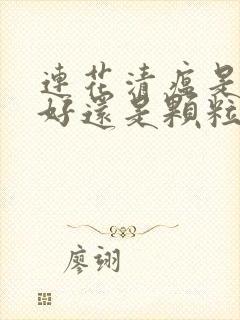 連花清瘟是
好還是顆粒
廖翊